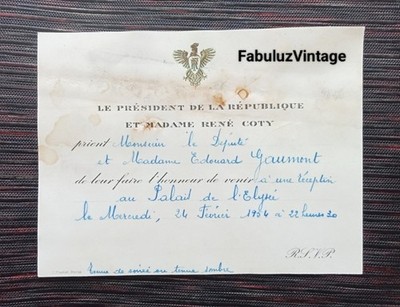 FabuluzVintage
LE PRÉSIDENT DE LA RÉPUBLIQUE
ET MADAME RENÉ COTY
prient Monsieur le Député
et Madame Edouard Gaumont
de leur faire l'honneur de venir à une réception
au Palais de l'Elysée
le Mercredi, 24 Février 1954 à 22 heures 30
R.S.V.P.
tenue de soirée ou tenue sombre